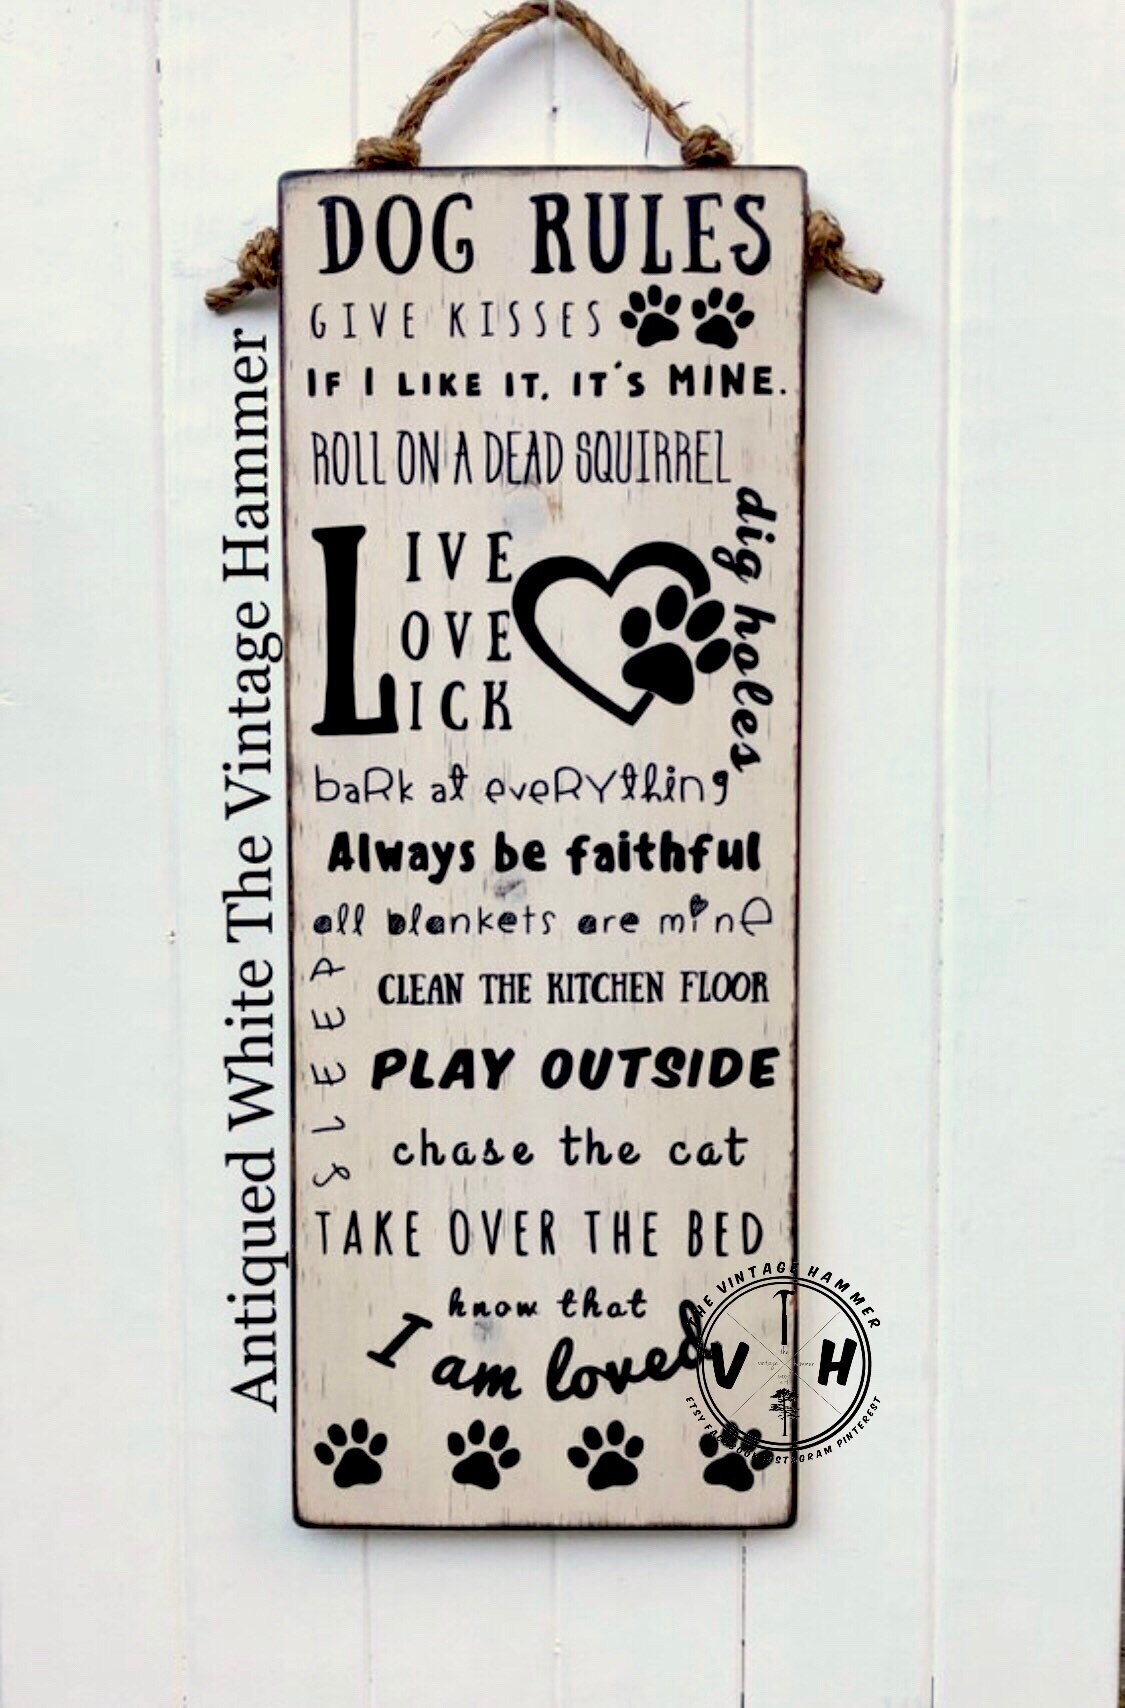 DOG RULES
GIVE KISSES
IF I LIKE IT, IT'S MINE.
ROLL ON A DEAD SQUIRREL
dig holes
LIVE
LOVE
LICK
baRk at eveRYthing
Always be faithful
all blankets are minE
SLEEP
CLEAN THE KITCHEN FLOOR
PLAY OUTSIDE
chase the cat
TAKE OVER THE BED
know that
I am loved
Antiqued White The Vintage Hammer
THE VINTAGE HAMMER
V H
ETSY FACEBOOK INSTAGRAM PINTEREST